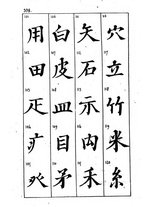 用 白 矢 穴
田 皮 石 立
疋 皿 示 竹
疒 目 禸 米
癶 矛 禾 糸